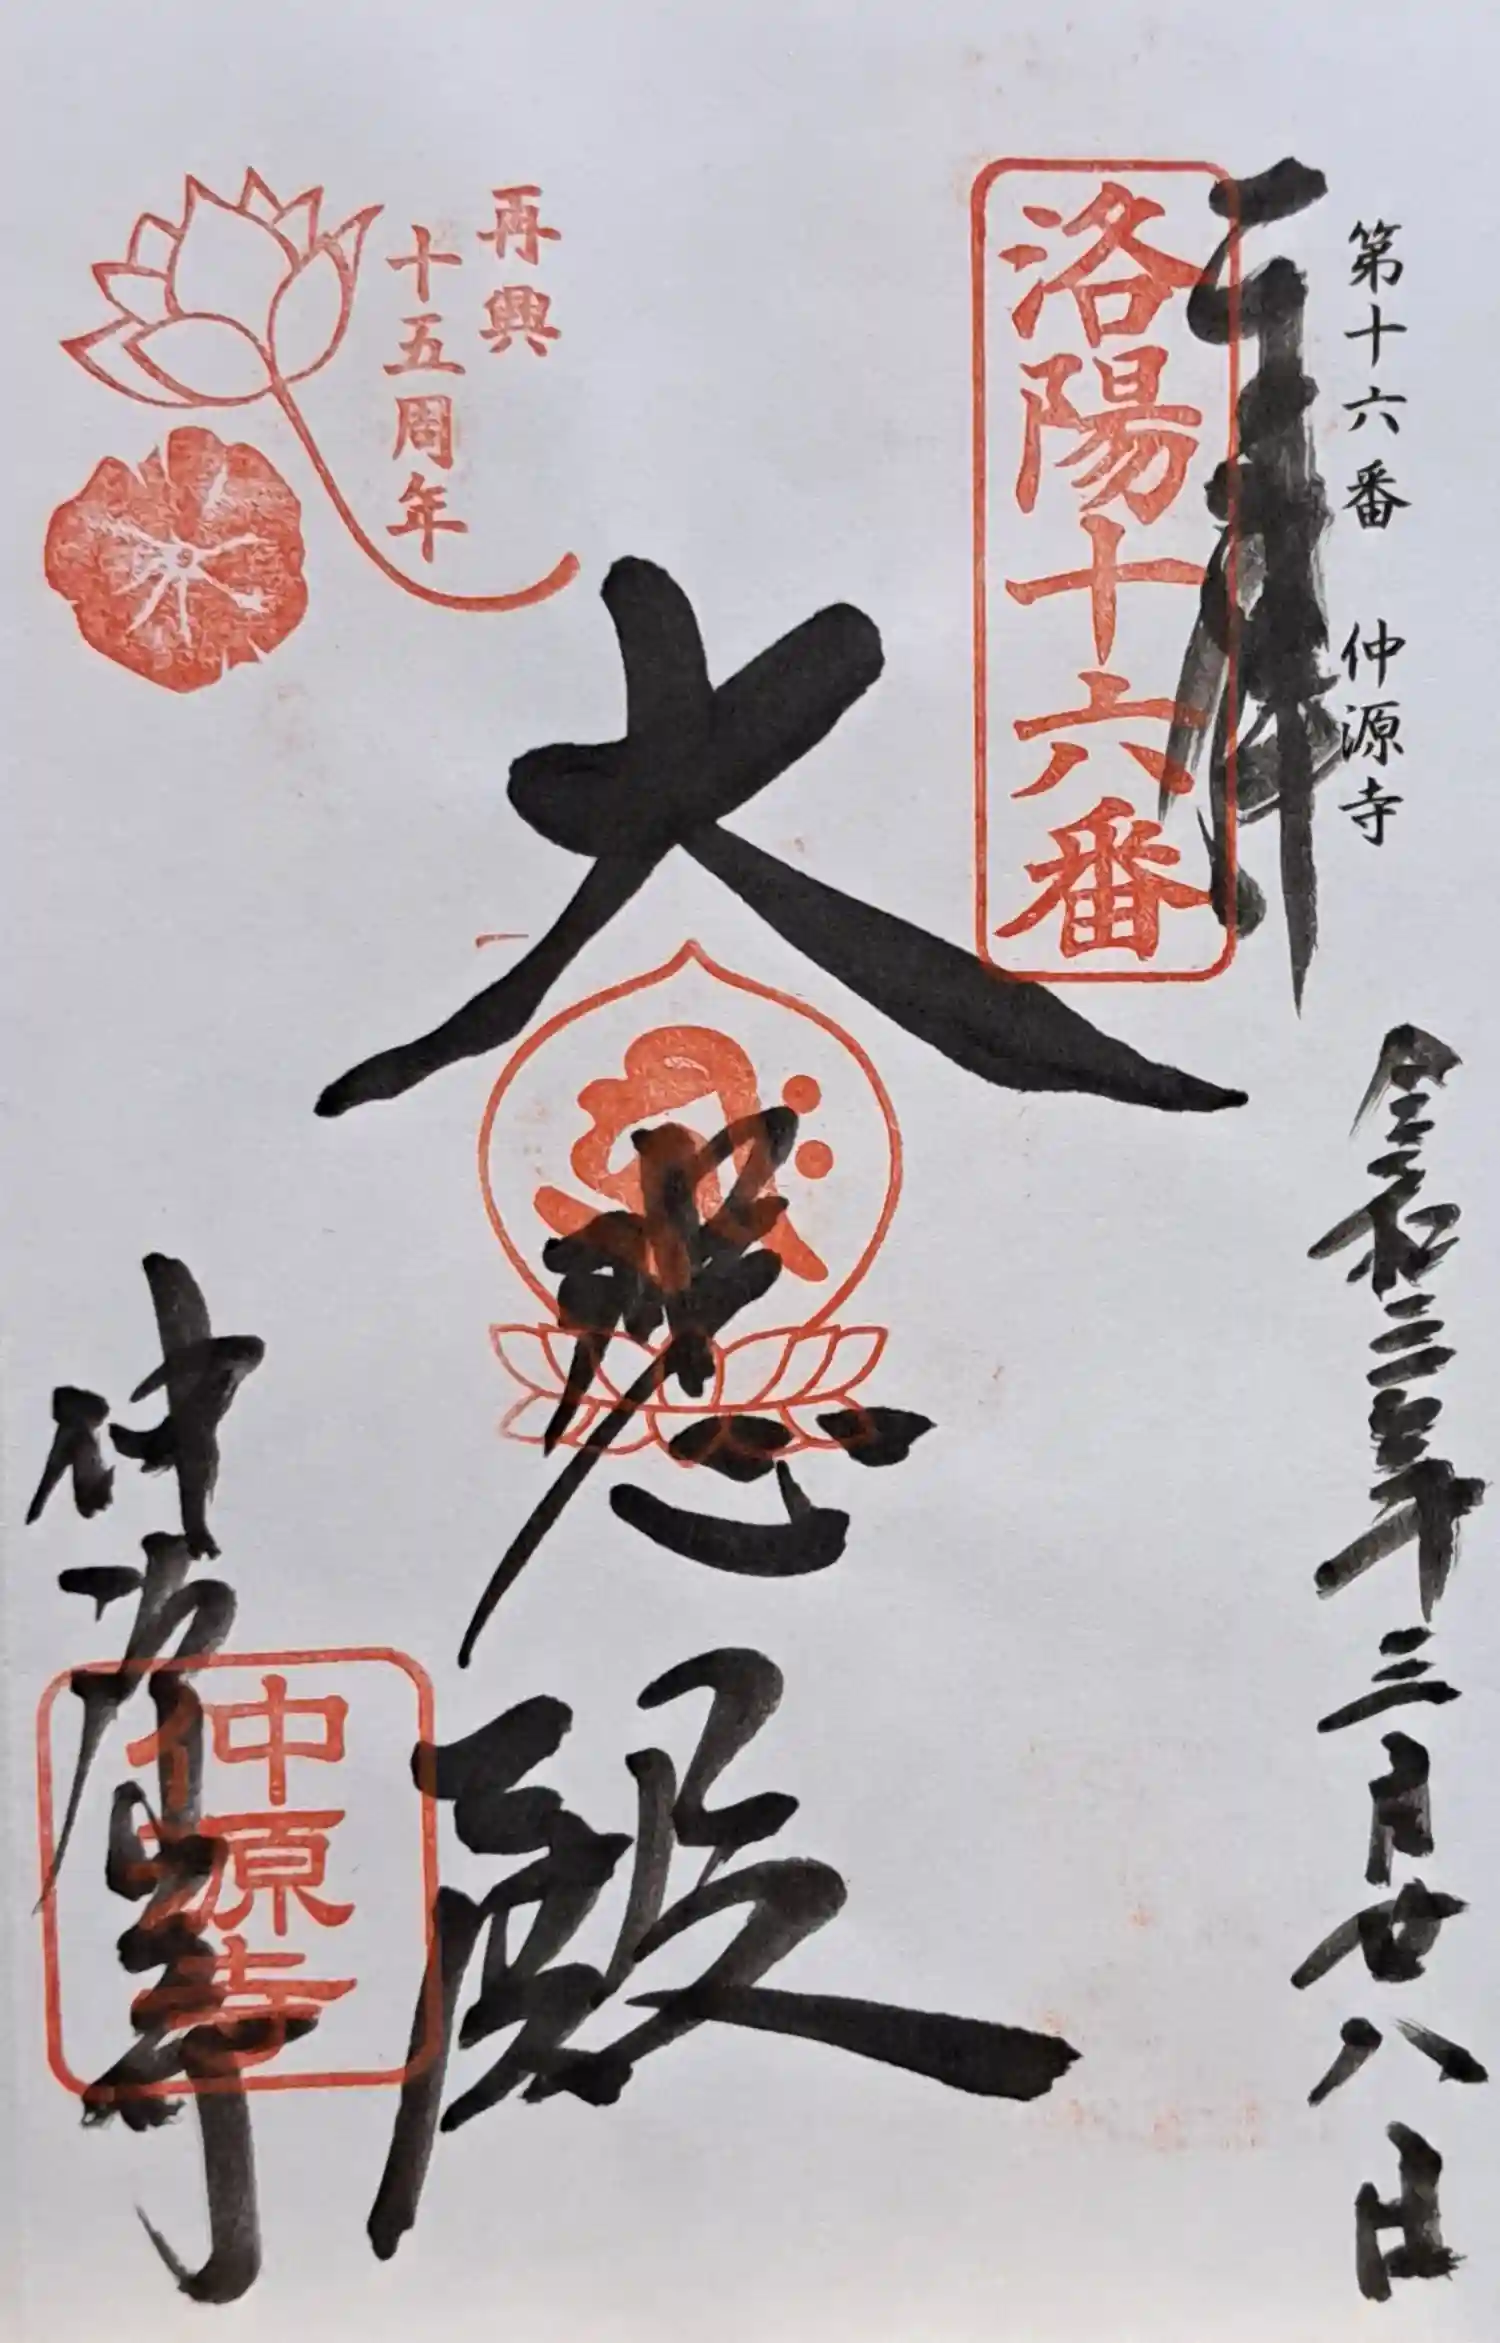 第十六番 仲源寺
奉拝
令和三年三月廿八日
洛陽十六番
大悲殿
再興
十五周年
仲源寺
仲源寺